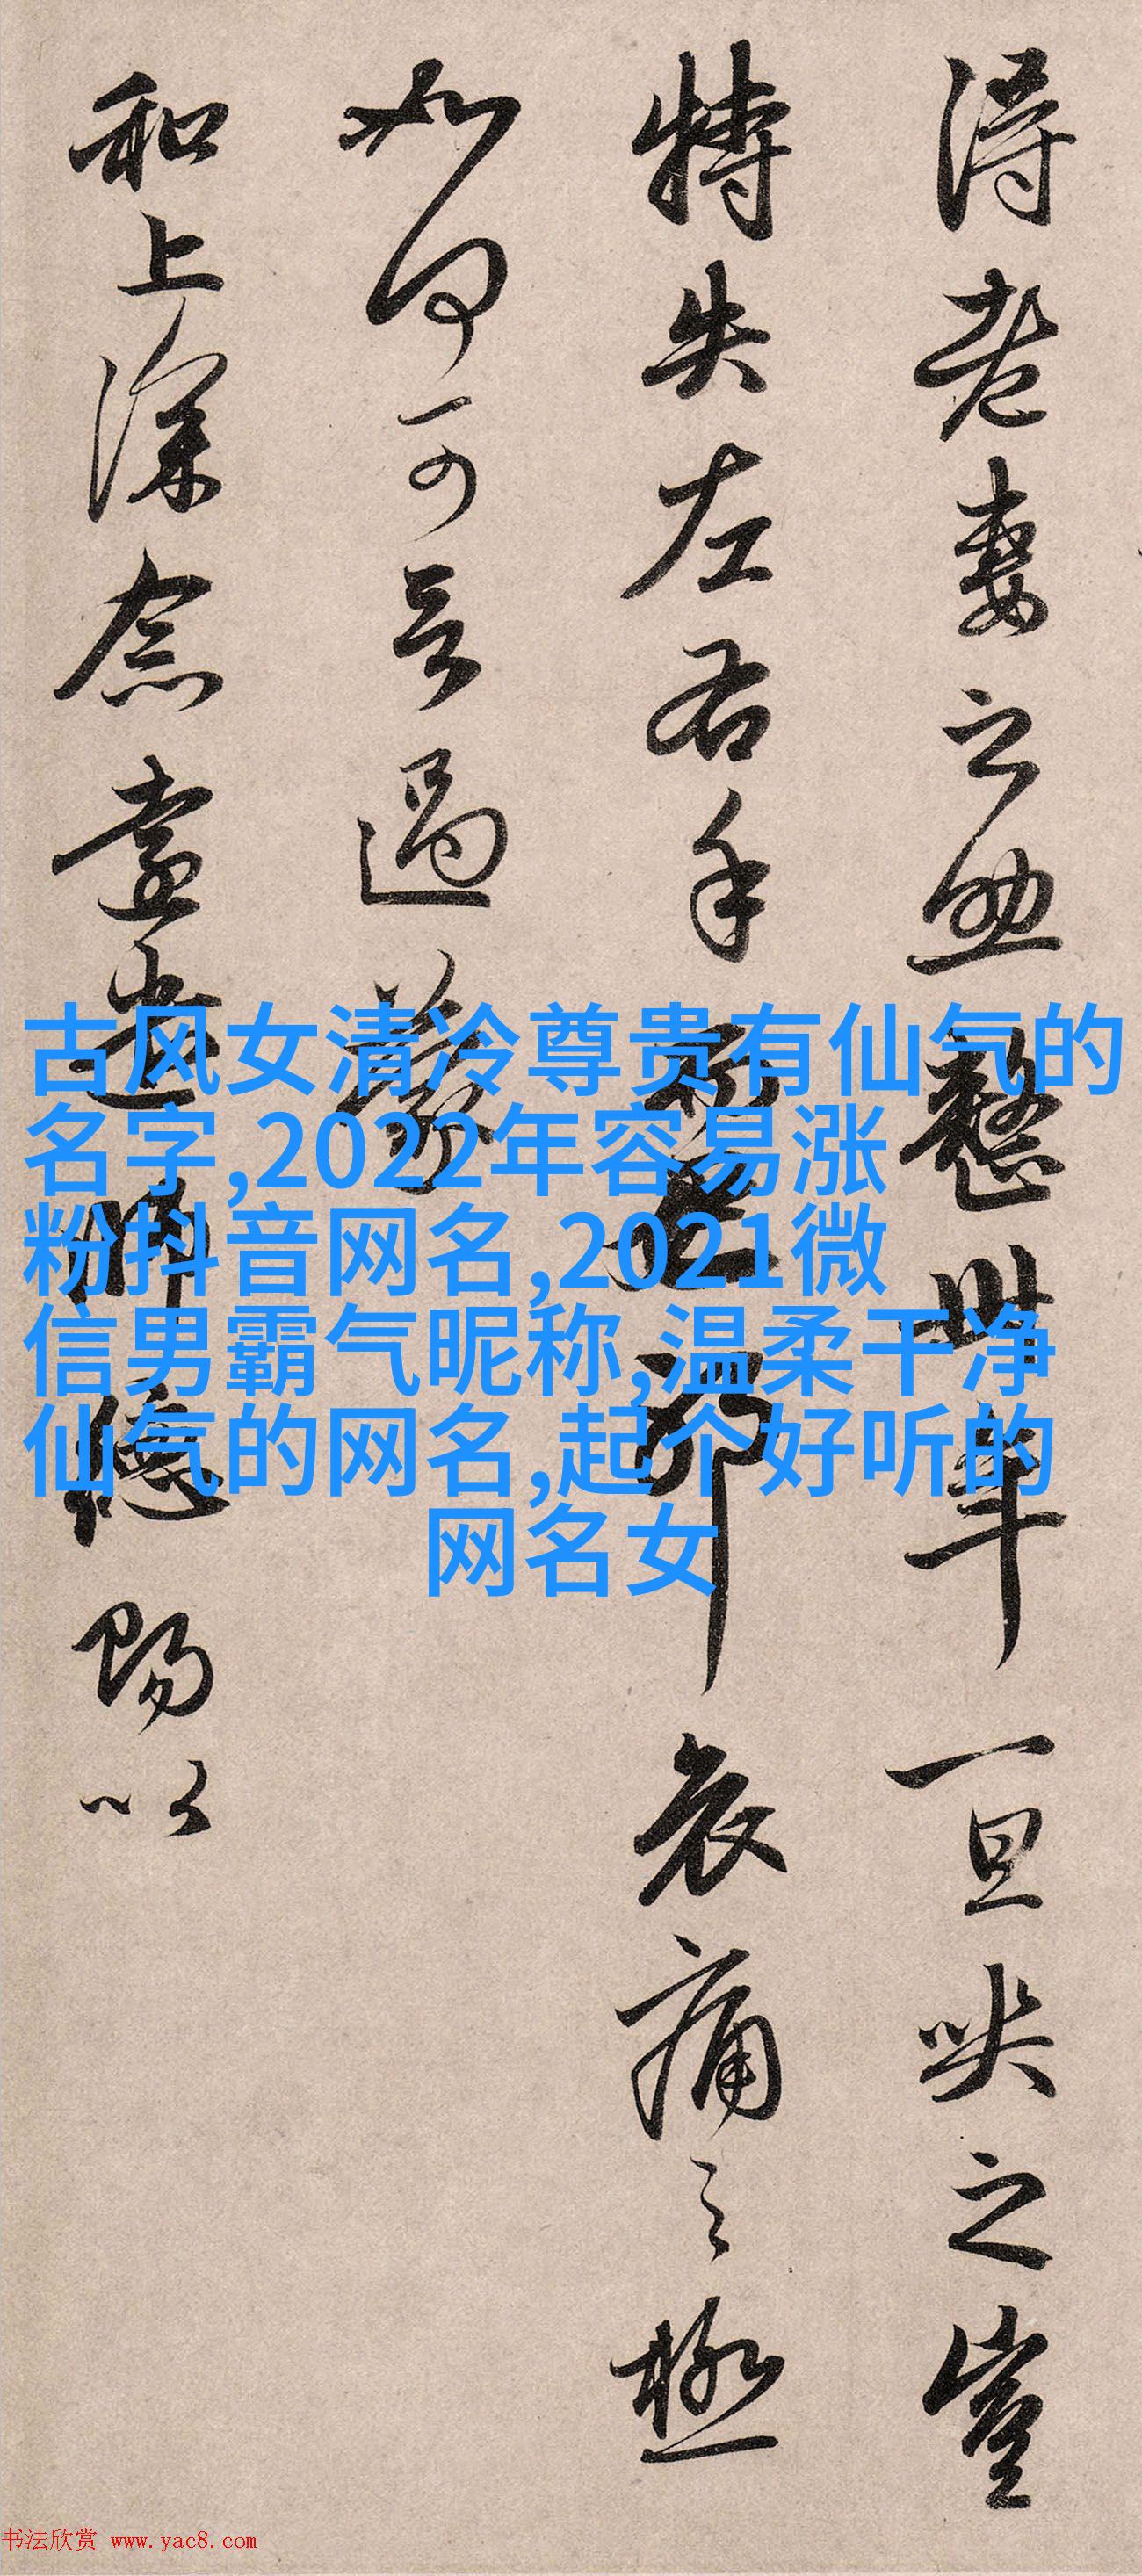 得老妻之助整卅年一旦哭之豈
特失左右手而已耶哀痛之極
如何可言過蒙
和上深念遠遣師德賜以
古风女清冷尊贵有仙气的
名字,2022年容易涨
粉抖音网名,2021微
信男霸气昵称,温柔干净
仙气的网名,起个好听的
网名女
书法欣赏 www.yac8.com